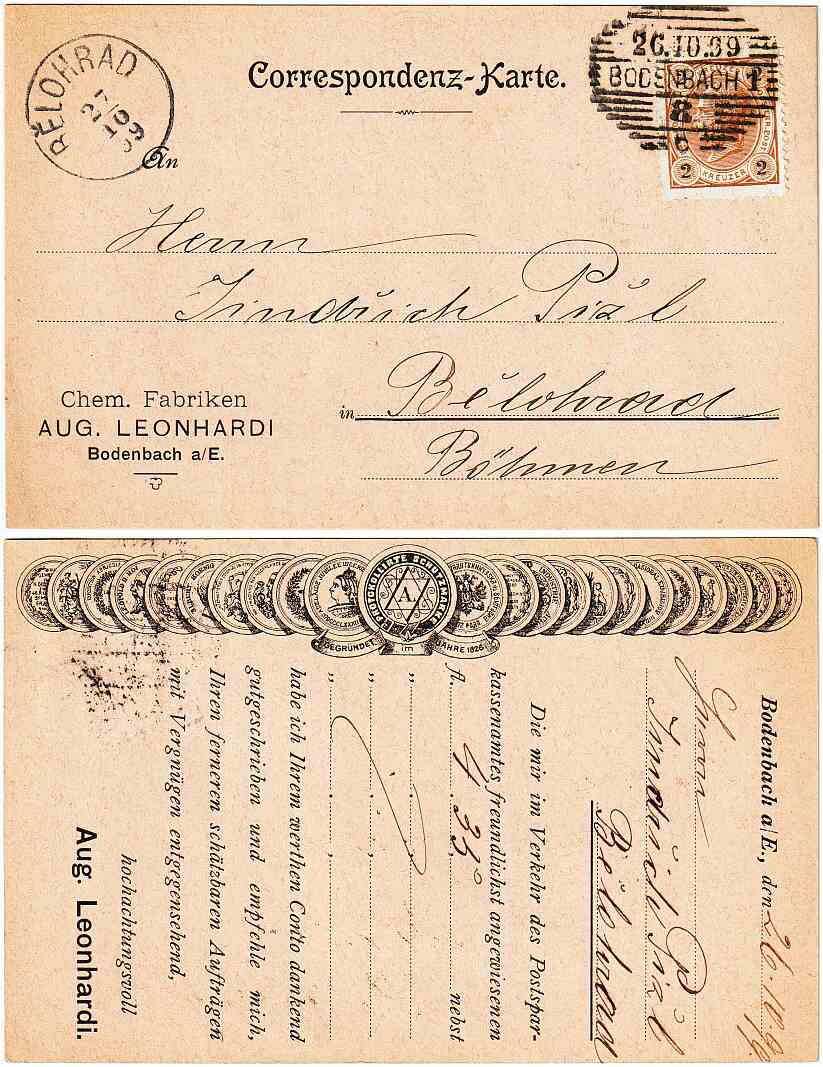 BĚLOHRAD
27/10
99
Correspondenz-Karte.
26.10.99
BODENBACH 1
8
2 KREUZER 2
An
Herrn
Jindřich Pižl
in Bělohrad
Böhmen
Chem. Fabriken
AUG. LEONHARDI
Bodenbach a/E.
REGISTRIRTE SCHUTZMARKE
A.
GEGRÜNDET im JAHRE 1826
Bodenbach a/E., den 26.10.99.
Herrn
Jindřich Pižl
Bělohrad
Die mir im Verkehr des Postspar-
kassenamtes freundlichst angewiesenen
fl. 4.35 nebst
„ „ „
„ „ „
habe ich Ihrem werthen Conto dankend
gutgeschrieben und empfehle mich,
Ihren ferneren schälzbaren Aufträgen
mit Vergnügen entgegensehend,
hochachtungsvoll
Aug. Leonhardi.